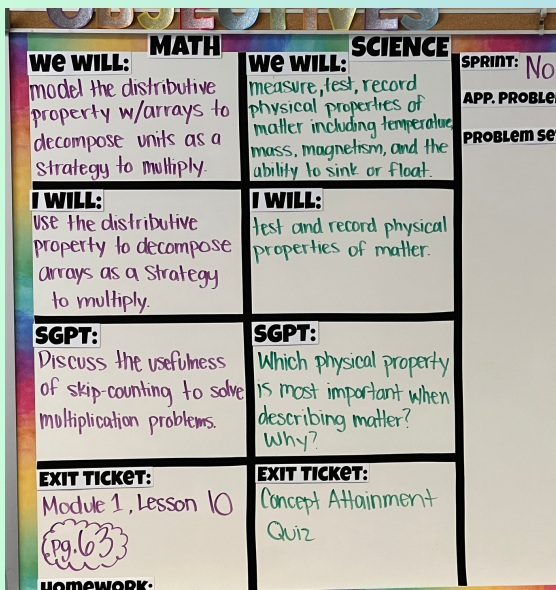 OBJECTIVES
MATH
WE WILL:
model the distributive
property w/arrays to
decompose units as a
strategy to multiply.
I WILL:
use the distributive
property to decompose
arrays as a strategy
to multiply.
SGPT:
Discuss the usefulness
of skip-counting to solve
multiplication problems.
EXIT TICKET:
Module 1, Lesson 10
pg.63
HOMEWORK:
SCIENCE
WE WILL:
measure, test, record
physical properties of
matter including temperature,
mass, magnetism, and the
ability to sink or float.
I WILL:
test and record physical
properties of matter.
SGPT:
Which physical property
is most important when
describing matter?
Why?
EXIT TICKET:
Concept Attainment
Quiz
SPRINT: No
APP. PROBLE
PROBLEM SE